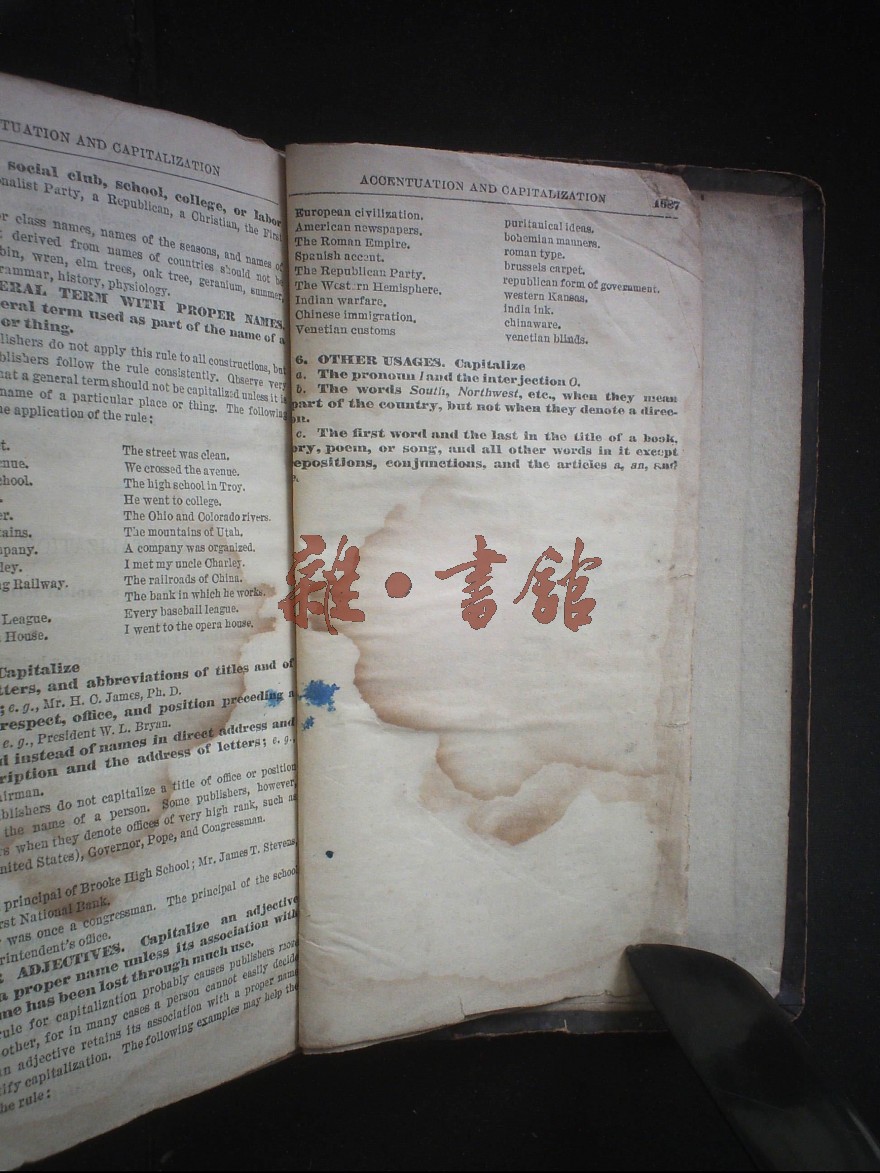 TUATION AND CAPITALIZATION
social club, school, college, or labor
nalist Party, a Republican, a Christian, the First
or class names, names of the seasons, and names of
derived from names of countries should not be
bin, wren, elm trees, oak tree, geranium, summer,
rammar, history, physiology.
ERAL TERM WITH PROPER NAMES.
eral term used as part of the name of a
or thing.
lishers do not apply this rule to all constructions, but
blishers follow the rule consistently. Observe very
at a general term should not be capitalized unless it is
name of a particular place or thing. The following
he application of the rule:
t. The street was clean.
nue. We crossed the avenue.
chool. The high school in Troy.
He went to college.
er. The Ohio and Colorado rivers.
tains. The mountains of Utah.
mpany. A company was organized.
ley. I met my uncle Charley.
g Railway. The railroads of China.
The bank in which he works.
League. Every baseball league.
House. I went to the opera house.
Capitalize
tters, and abbreviations of titles and of
; e. g., Mr. H. C. James, Ph. D.
respect, office, and position preceding a
e. g., President W. L. Bryan.
d instead of names in direct address and
ription and the address of letters; e. g.,
airman.
ublishers do not capitalize a title of office or position
the name of a person. Some publishers, however,
s when they denote offices of very high rank, such as
nited States), Governor, Pope, and Congressman.
principal of Brooke High School; Mr. James T. Stevens,
rst National Bank.
was once a congressman. The principal of the school
rintendent's office.
R ADJECTIVES. Capitalize an adjective
a proper name unless its association with
me has been lost through much use.
rule for capitalization probably causes publishers more
other, for in many cases a person cannot easily decide
n adjective retains its association with a proper name
tify capitalization. The following examples may help the
he rule:
ACCENTUATION AND CAPITALIZATION 1587
European civilization. puritanical ideas.
American newspapers. bohemian manners.
The Roman Empire. roman type.
Spanish accent. brussels carpet.
The Republican Party. republican form of government.
The Western Hemisphere. western Kansas.
Indian warfare. india ink.
Chinese immigration. chinaware.
Venetian customs venetian blinds.
6. OTHER USAGES. Capitalize
a. The pronoun I and the interjection O.
b. The words South, Northwest, etc., when they mean
part of the country, but not when they denote a direc-
on.
c. The first word and the last in the title of a book,
ory, poem, or song, and all other words in it except
epositions, conjunctions, and the articles a, an, and
雜·書館